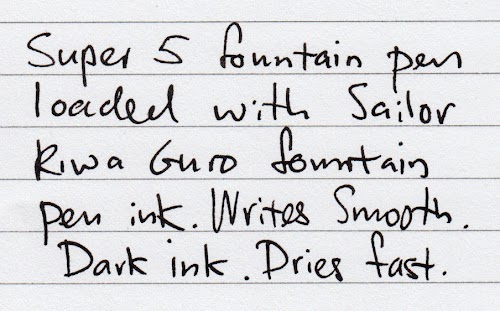 Super 5 fountain pen
loaded with Sailor
Kiwa Guro fountain
pen ink. Writes Smooth.
Dark ink. Dries fast.